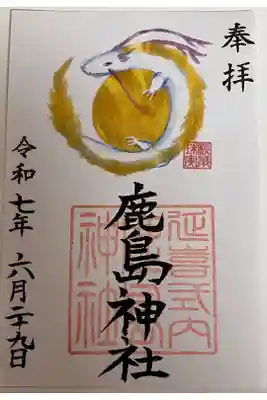 奉拝
延喜式内
鹿島神社
鹿島神社
令和七年 六月二十九日